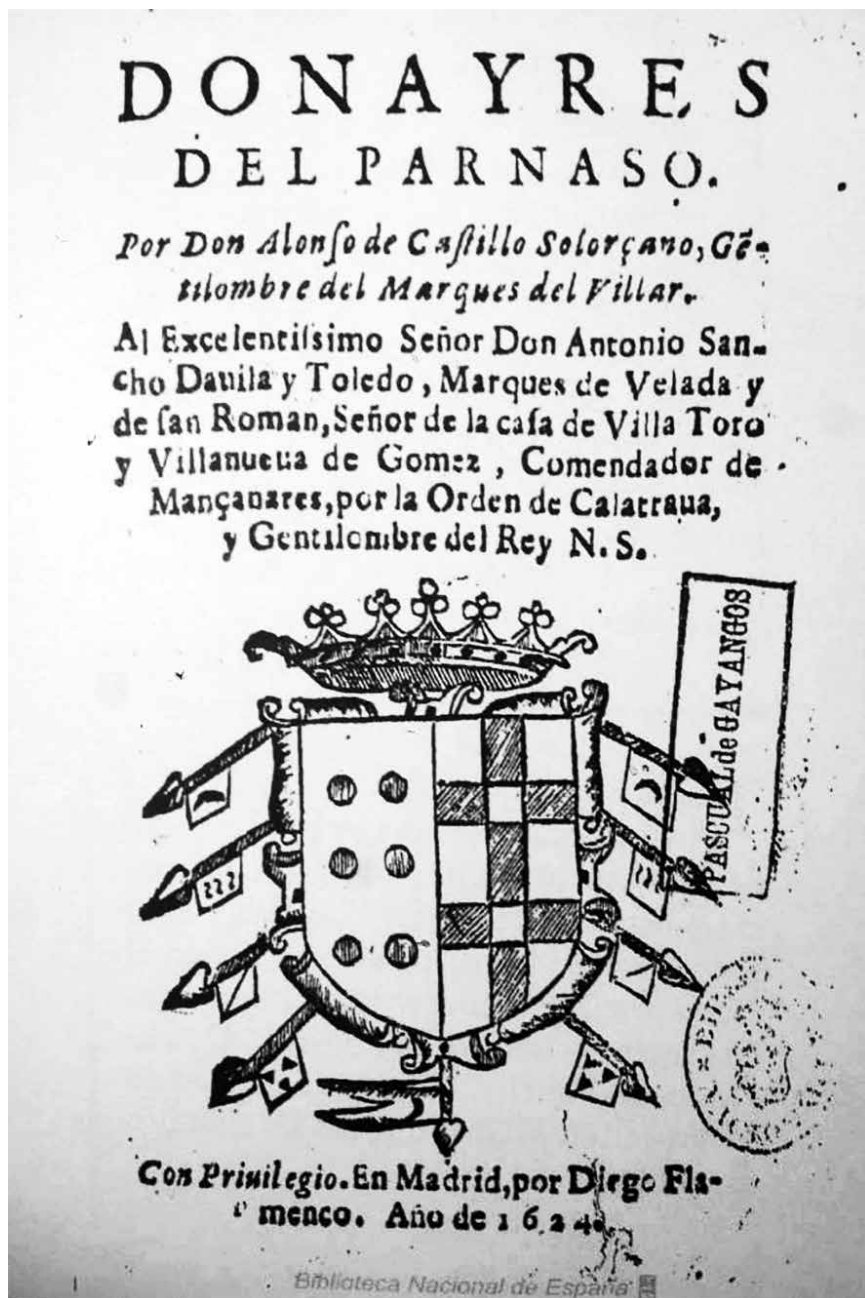 DONAYRES
DEL PARNASO.
Por Don Alonſo de Caſtillo Solorçano, Gẽ-
tilombre del Marques del Villar.
Al Excelentiſsimo Señor Don Antonio San-
cho Dauila y Toledo, Marques de Velada y
de ſan Roman, Señor de la caſa de Villa Toro
y Villanueua de Gomez, Comendador de
Mançanares, por la Orden de Calatraua,
y Gentilombre del Rey N. S.
PASCUAL de GAYANGOS
Con Priuilegio. En Madrid, por Diego Fla-
menco. Año de 1624.
Biblioteca Nacional de España